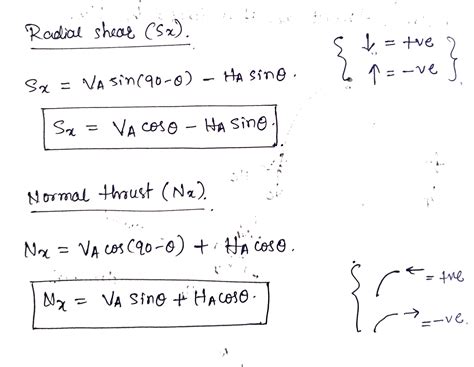 Radial shear (Sx).
{ ↓ = +ve
↑ = -ve }
Sx = VA sin(90-θ) - HA sinθ.
Sx = VA cosθ - HA sinθ.
Normal thrust (Nx).
Nx = VA cos(90-θ) + HA cosθ.
Nx = VA sinθ + HA cosθ.
{ ← = +ve
→ = -ve.